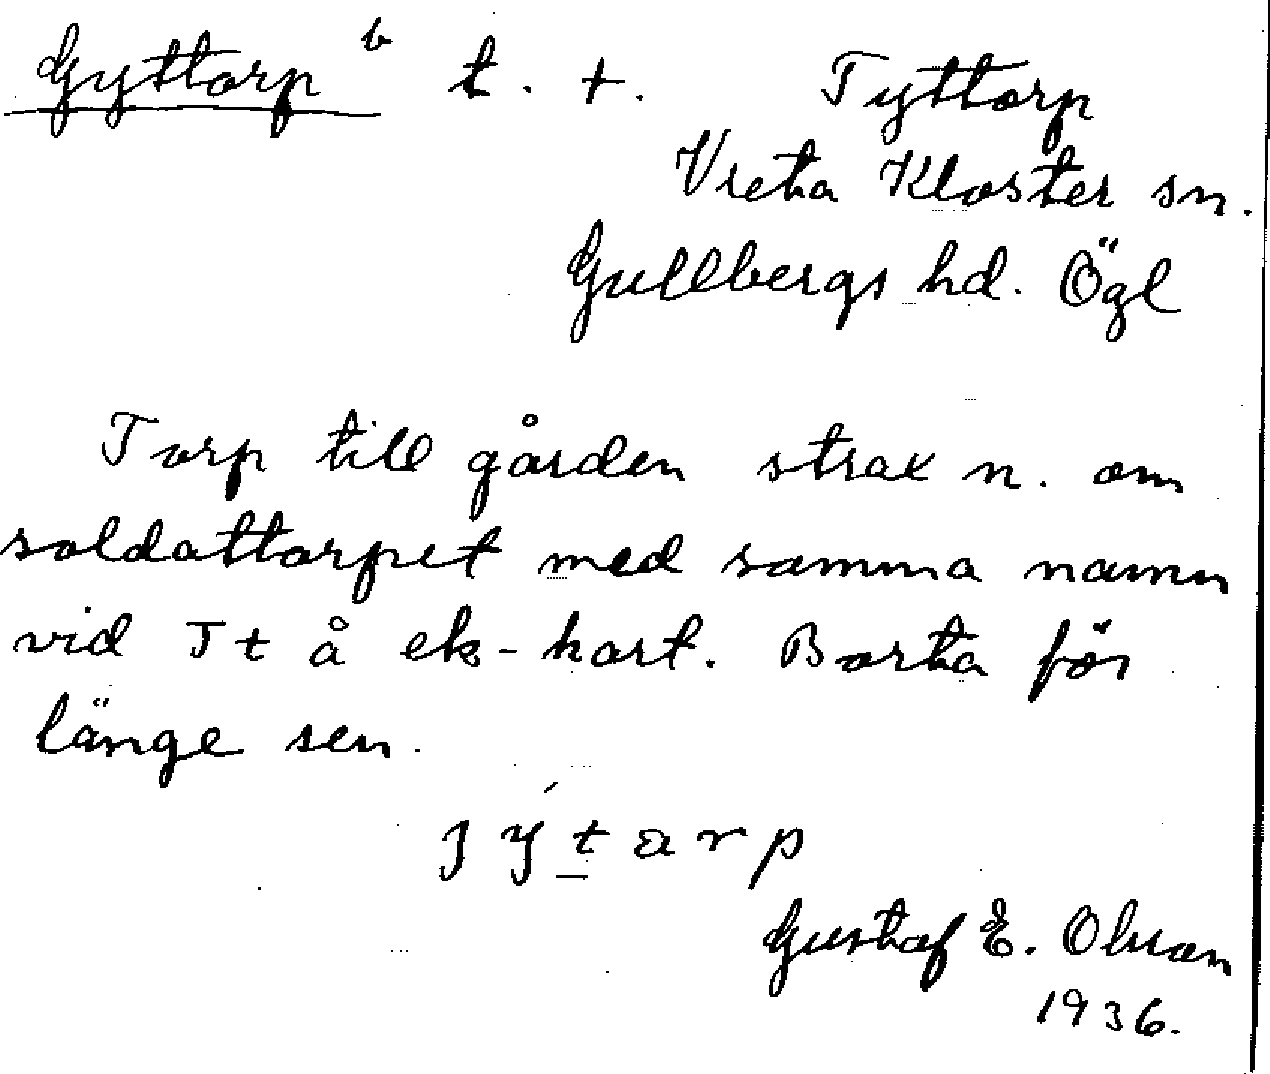 Gyttorp b t. +. Tyttorp
Vreta Kloster sn.
Gullbergs hd. Ögl
Torp till gården strax n. om
soldattorpet med samma namn
vid Tt å ek-kart. Borta för
länge sen.
jýtarp
Gustaf E. Olsson
1936.